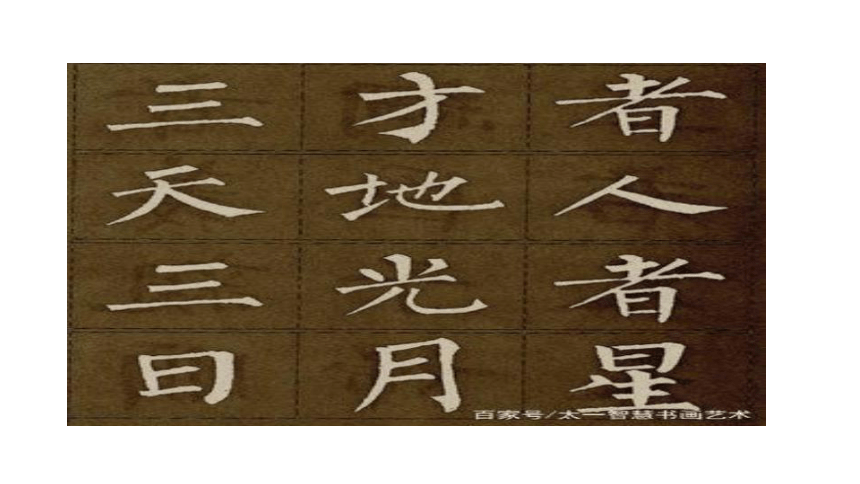 三才者
天地人
三光者
日月星
百家号/太一智慧书画艺术